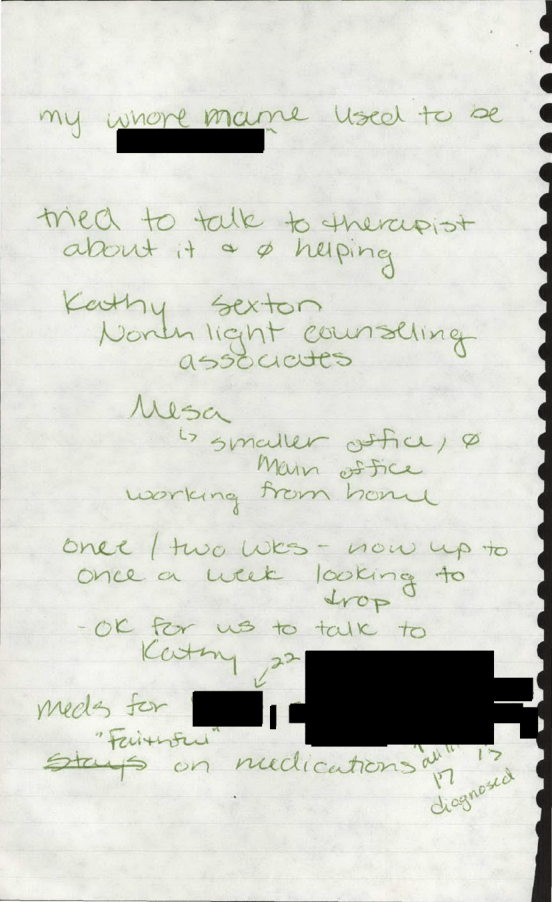 my whole name used to be
tried to talk to therapist
about it & ø helping
Kathy Sexton
North light counseling
associates
Mesa
↳ smaller office, ø
Main office
working from home
once / two wks - now up to
once a week looking to
drop
- OK for us to talk to
Kathy
22
meds for
"Faithful"
stays on medications
17
diagnosed